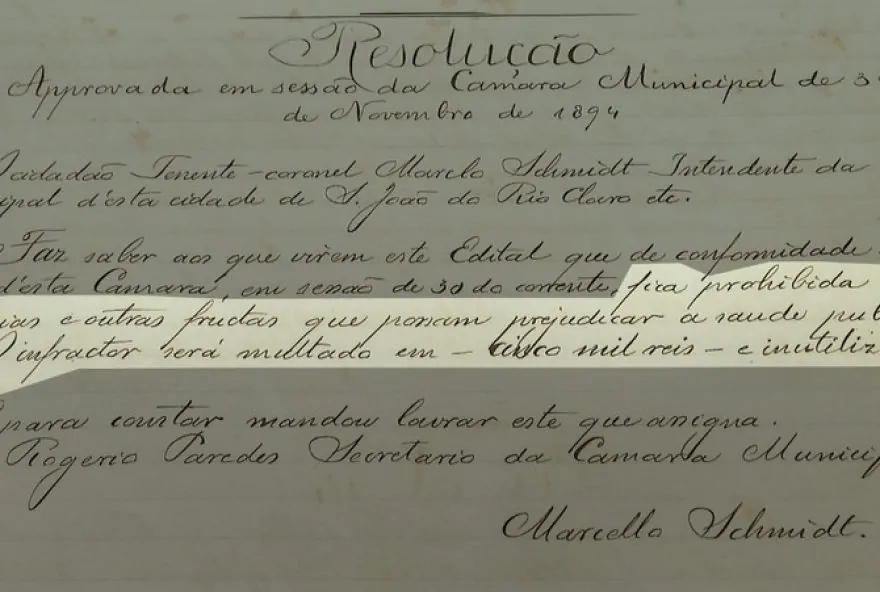 Resolucção
Approvada em sessão da Camara Municipal de 3
de Novembro de 1894
Tenente-coronel Marcelo Schmidt Intendente da
ipal d'esta cidade de S. João do Rio Claro etc.
Faz saber aos que virem este Edital que de conformidade
d'esta Camara, em sessão de 30 do corrente, fica prohibida
ias e outras fructas que possam prejudicar a saude pub
O infractor será multado em – cinco mil reis – e inutiliz
para constar mandou lavrar este que assigna.
Rogerio Paredes Secretario da Camara Municip
Marcello Schmidt.